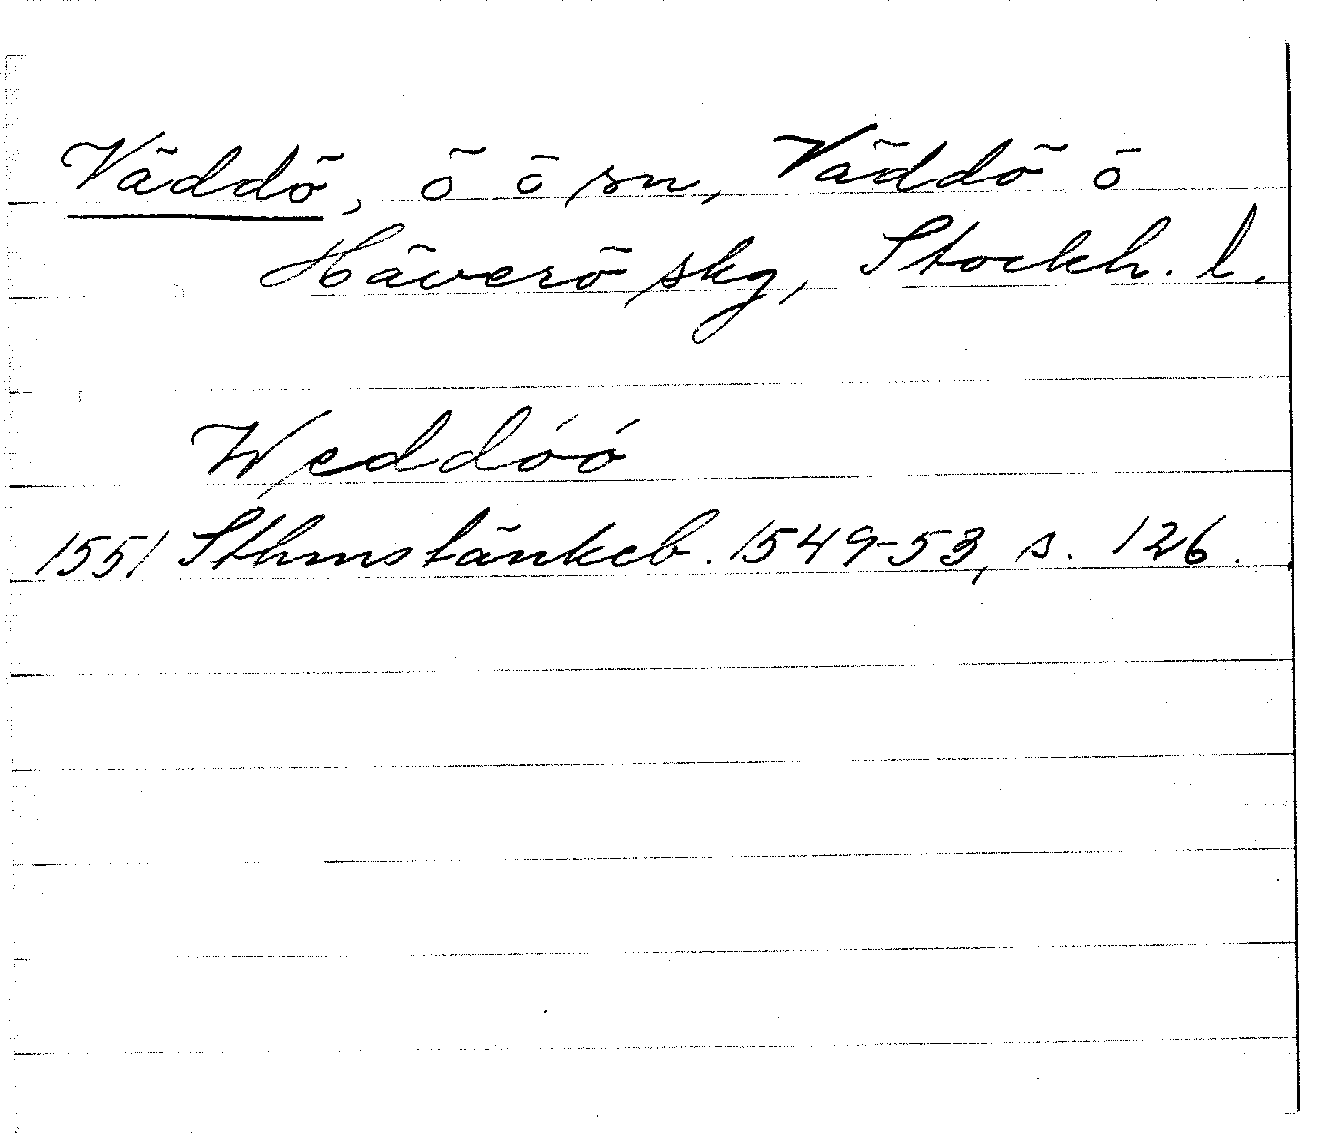 Väddö, ö ö sn, Väddö ö
Häverö skg, Stockh. l.
Weddóó
1551 Sthmstänkeb. 1549-53, s. 126.